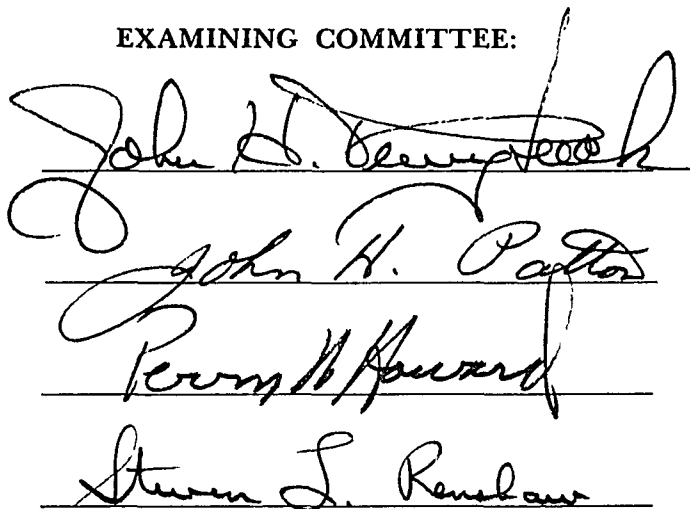 EXAMINING COMMITTEE:
John H. Pennybacker
John H. Patton
Perry H. Howard
Steven L. Renshaw